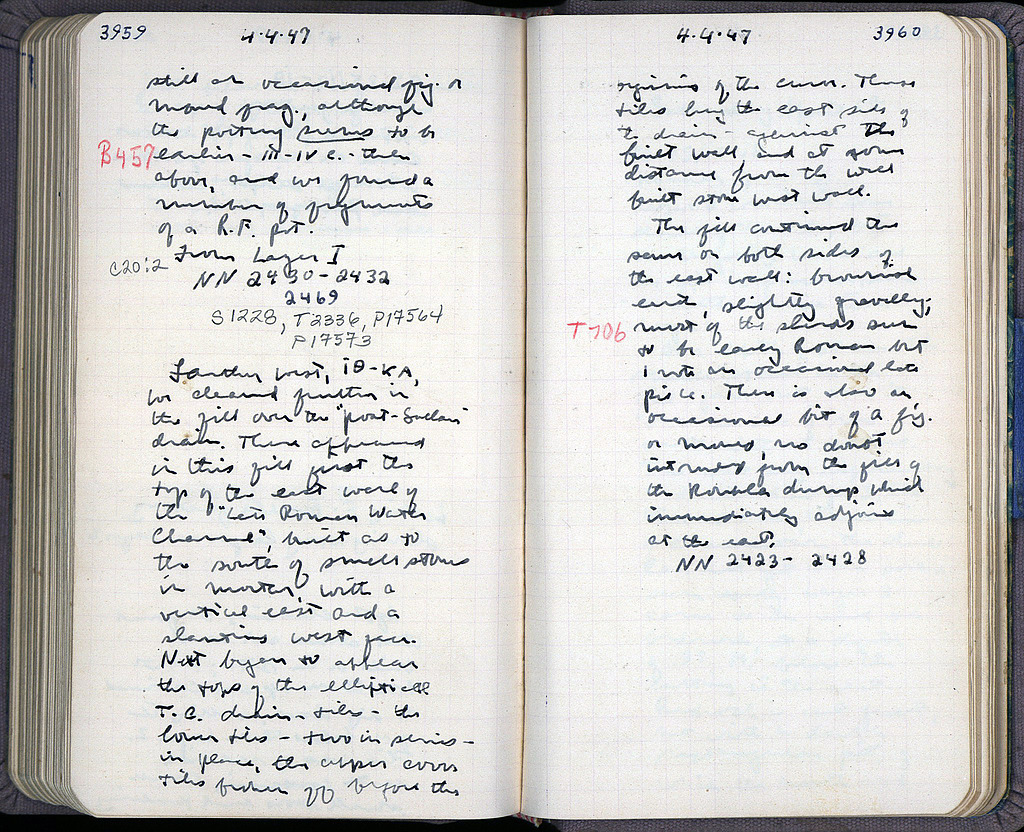 3959
4.4.47
still an occasional fig. or
mould frag., although
the pottery seems to be
B457
earlier - III-IV c. - than
above, and we found a
number of fragments
of a R.F. pot.
From Layer I
C20:2
NN 2430-2432
2469
S1228, T2336, P17564
P17573
Farther west, ΙΘ-ΚΑ,
we cleared further in
the fill over the "post-Sullan"
drain. There appeared
in this fill first the
top of the east wall of
the "Late Roman Water
Channel", built as to
the south of small stones
in mortar, with a
vertical east and a
slanting west face.
Next began to appear
the tops of the elliptical
T.C. drain-tiles - the
lower tiles - two in series -
in place, the upper cover
tiles broken off before the
4.4.47
3960
of the
tiles hug the east side of
the drain - against the
built wall, and at some
distance from the well
built stone west wall.
The fill continued the
same on both sides of
the east wall: brownish
earth, slightly gravelly;
T706
most of the sherds seem
to be early Roman but
I note an occasional late
piece. There is also an
occasional bit of a fig.
or mould, no doubt
intruded from the fill of
the Roubla dump which
immediately adjoins
at the east.
NN 2423-2428